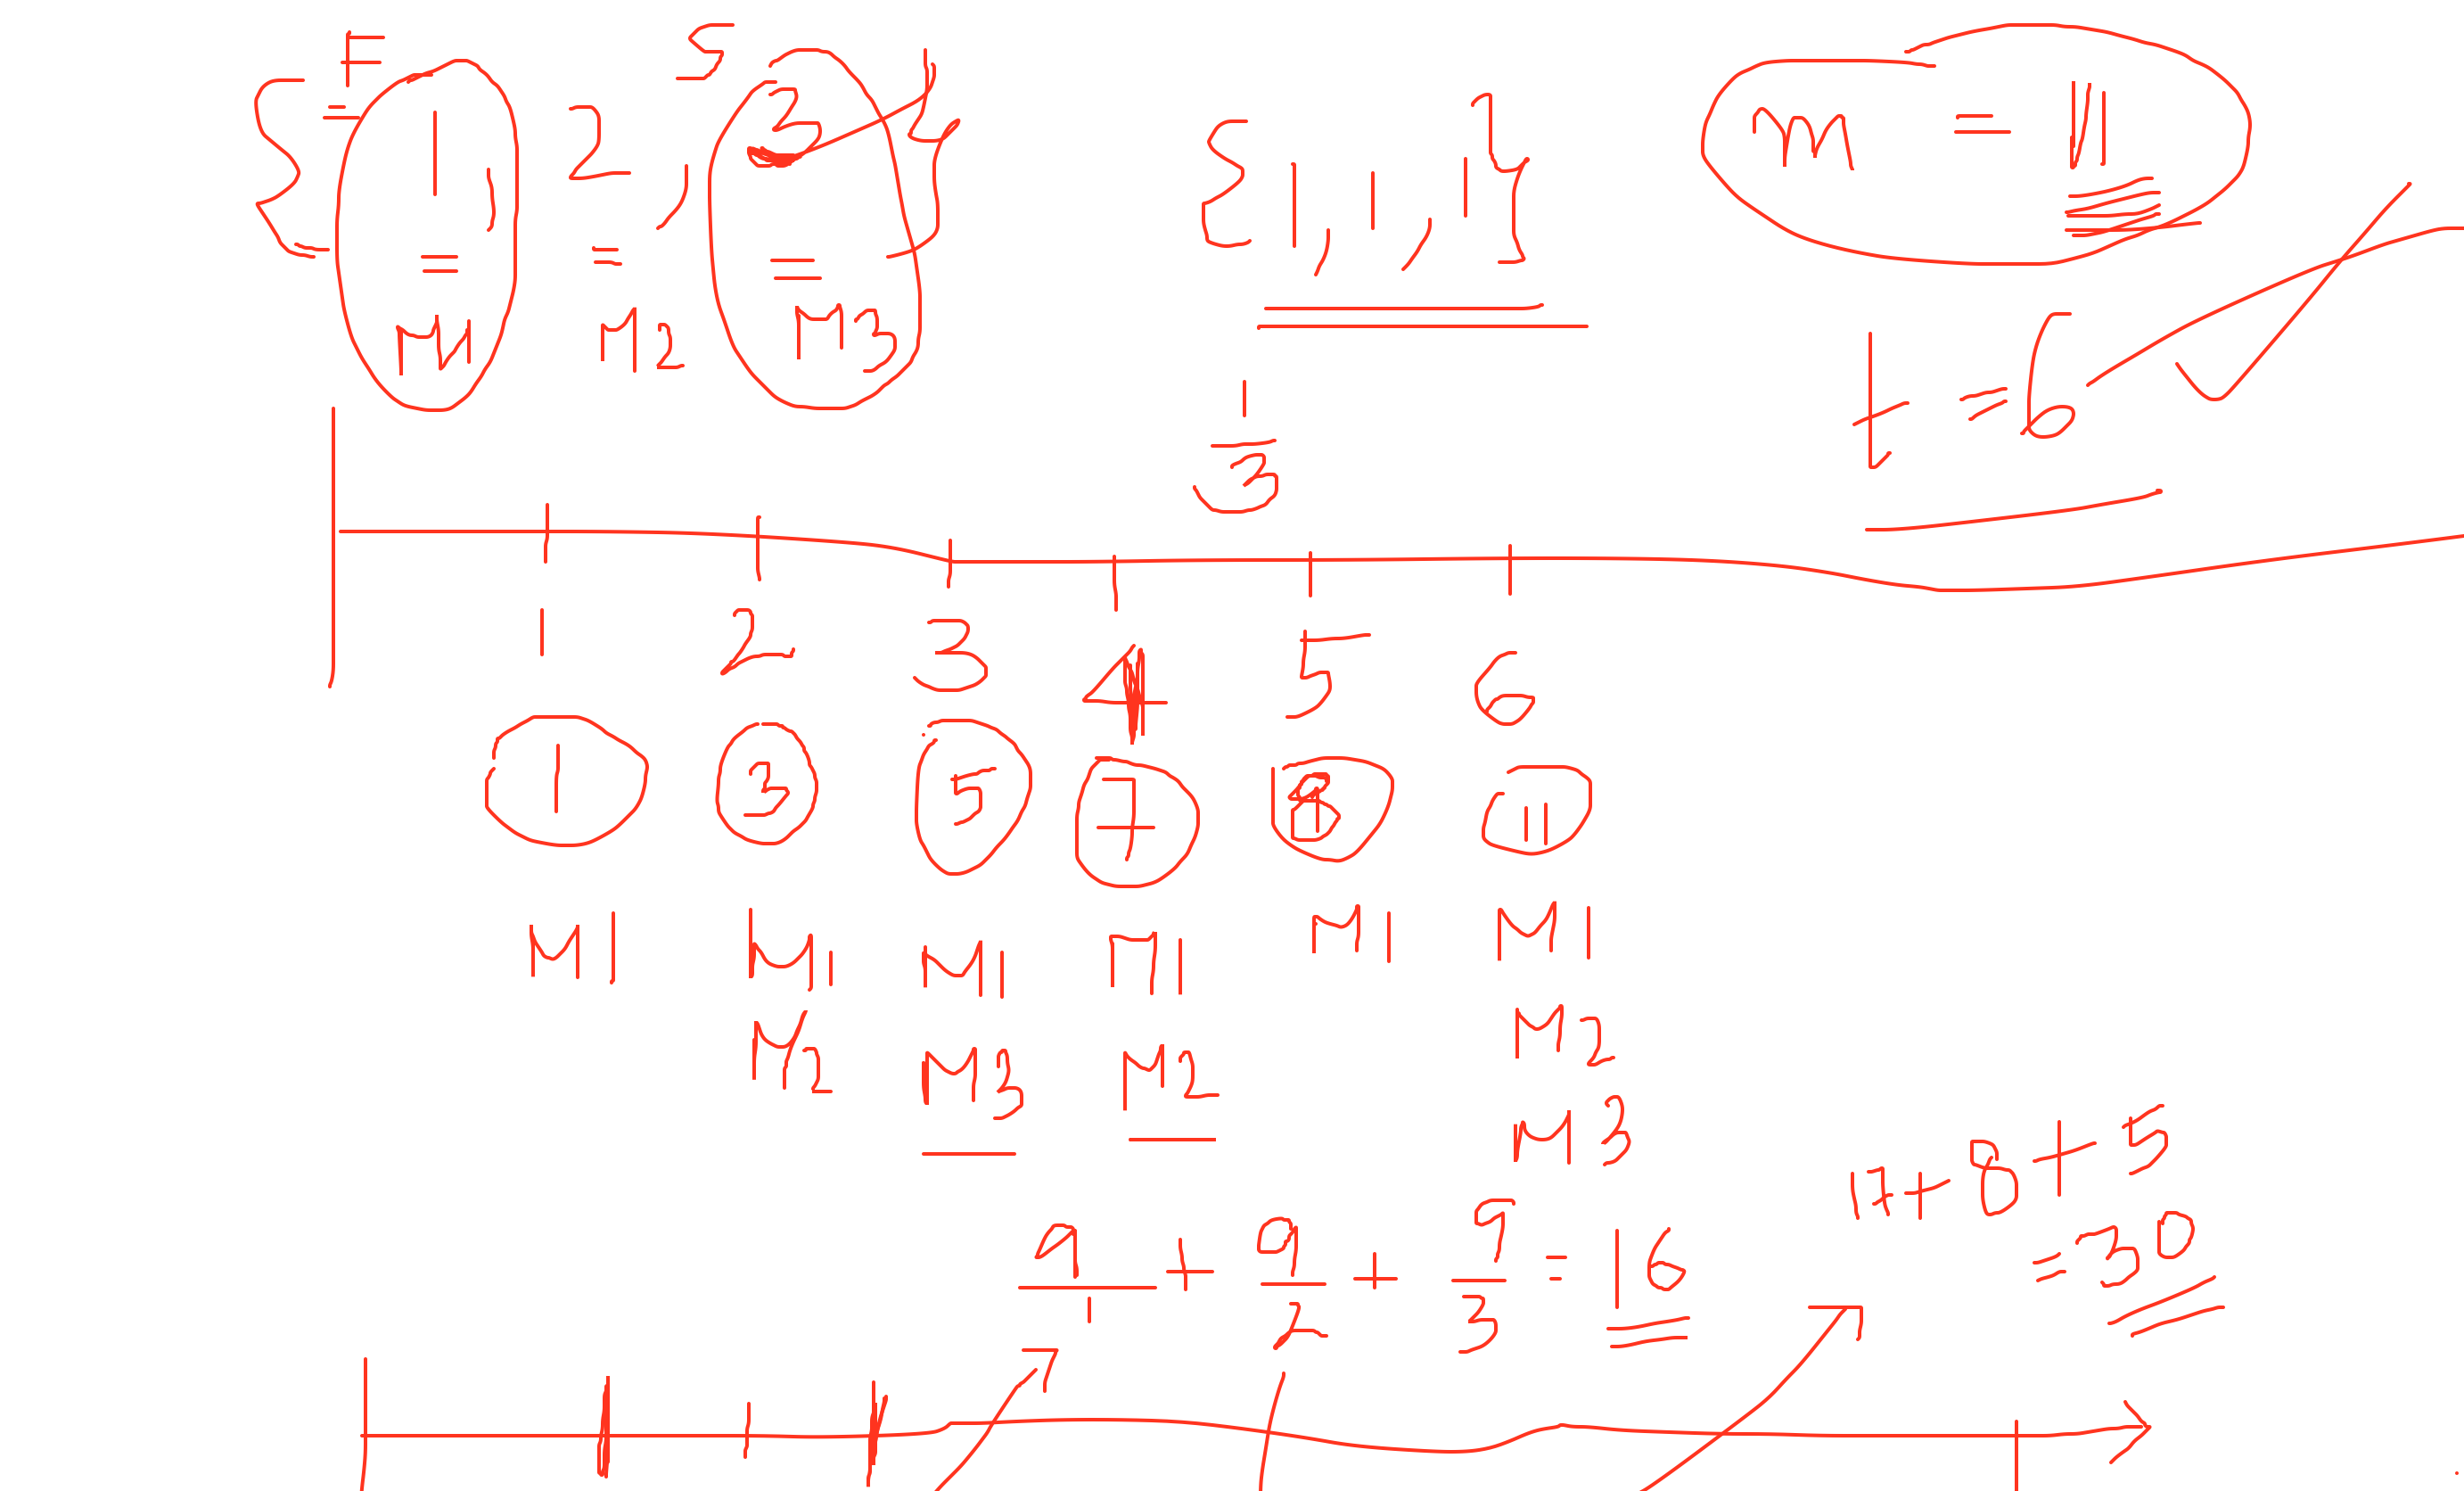 F S
{ 1, 2, 3 }
= = =
M1 M2 M3
{ 1, 1, 1 }
n = 11
1/3
t = 6
1 2 3 4 5 6
1 3 5 7 11
M1 M1 M1 M1 M1 M1
M2 M3 M2 M2
M3
9/1 + 9/2 + 9/3 = 16
17 + 8 + 5
= 30